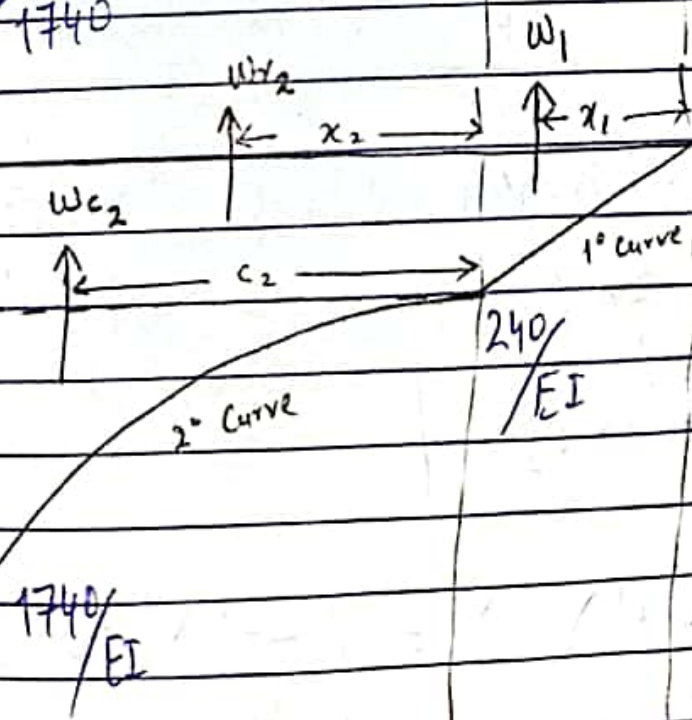 1740
W₁
Wr₂
x₂
x₁
Wc₂
c₂
1° curve
240/EI
2° Curve
1740/EI